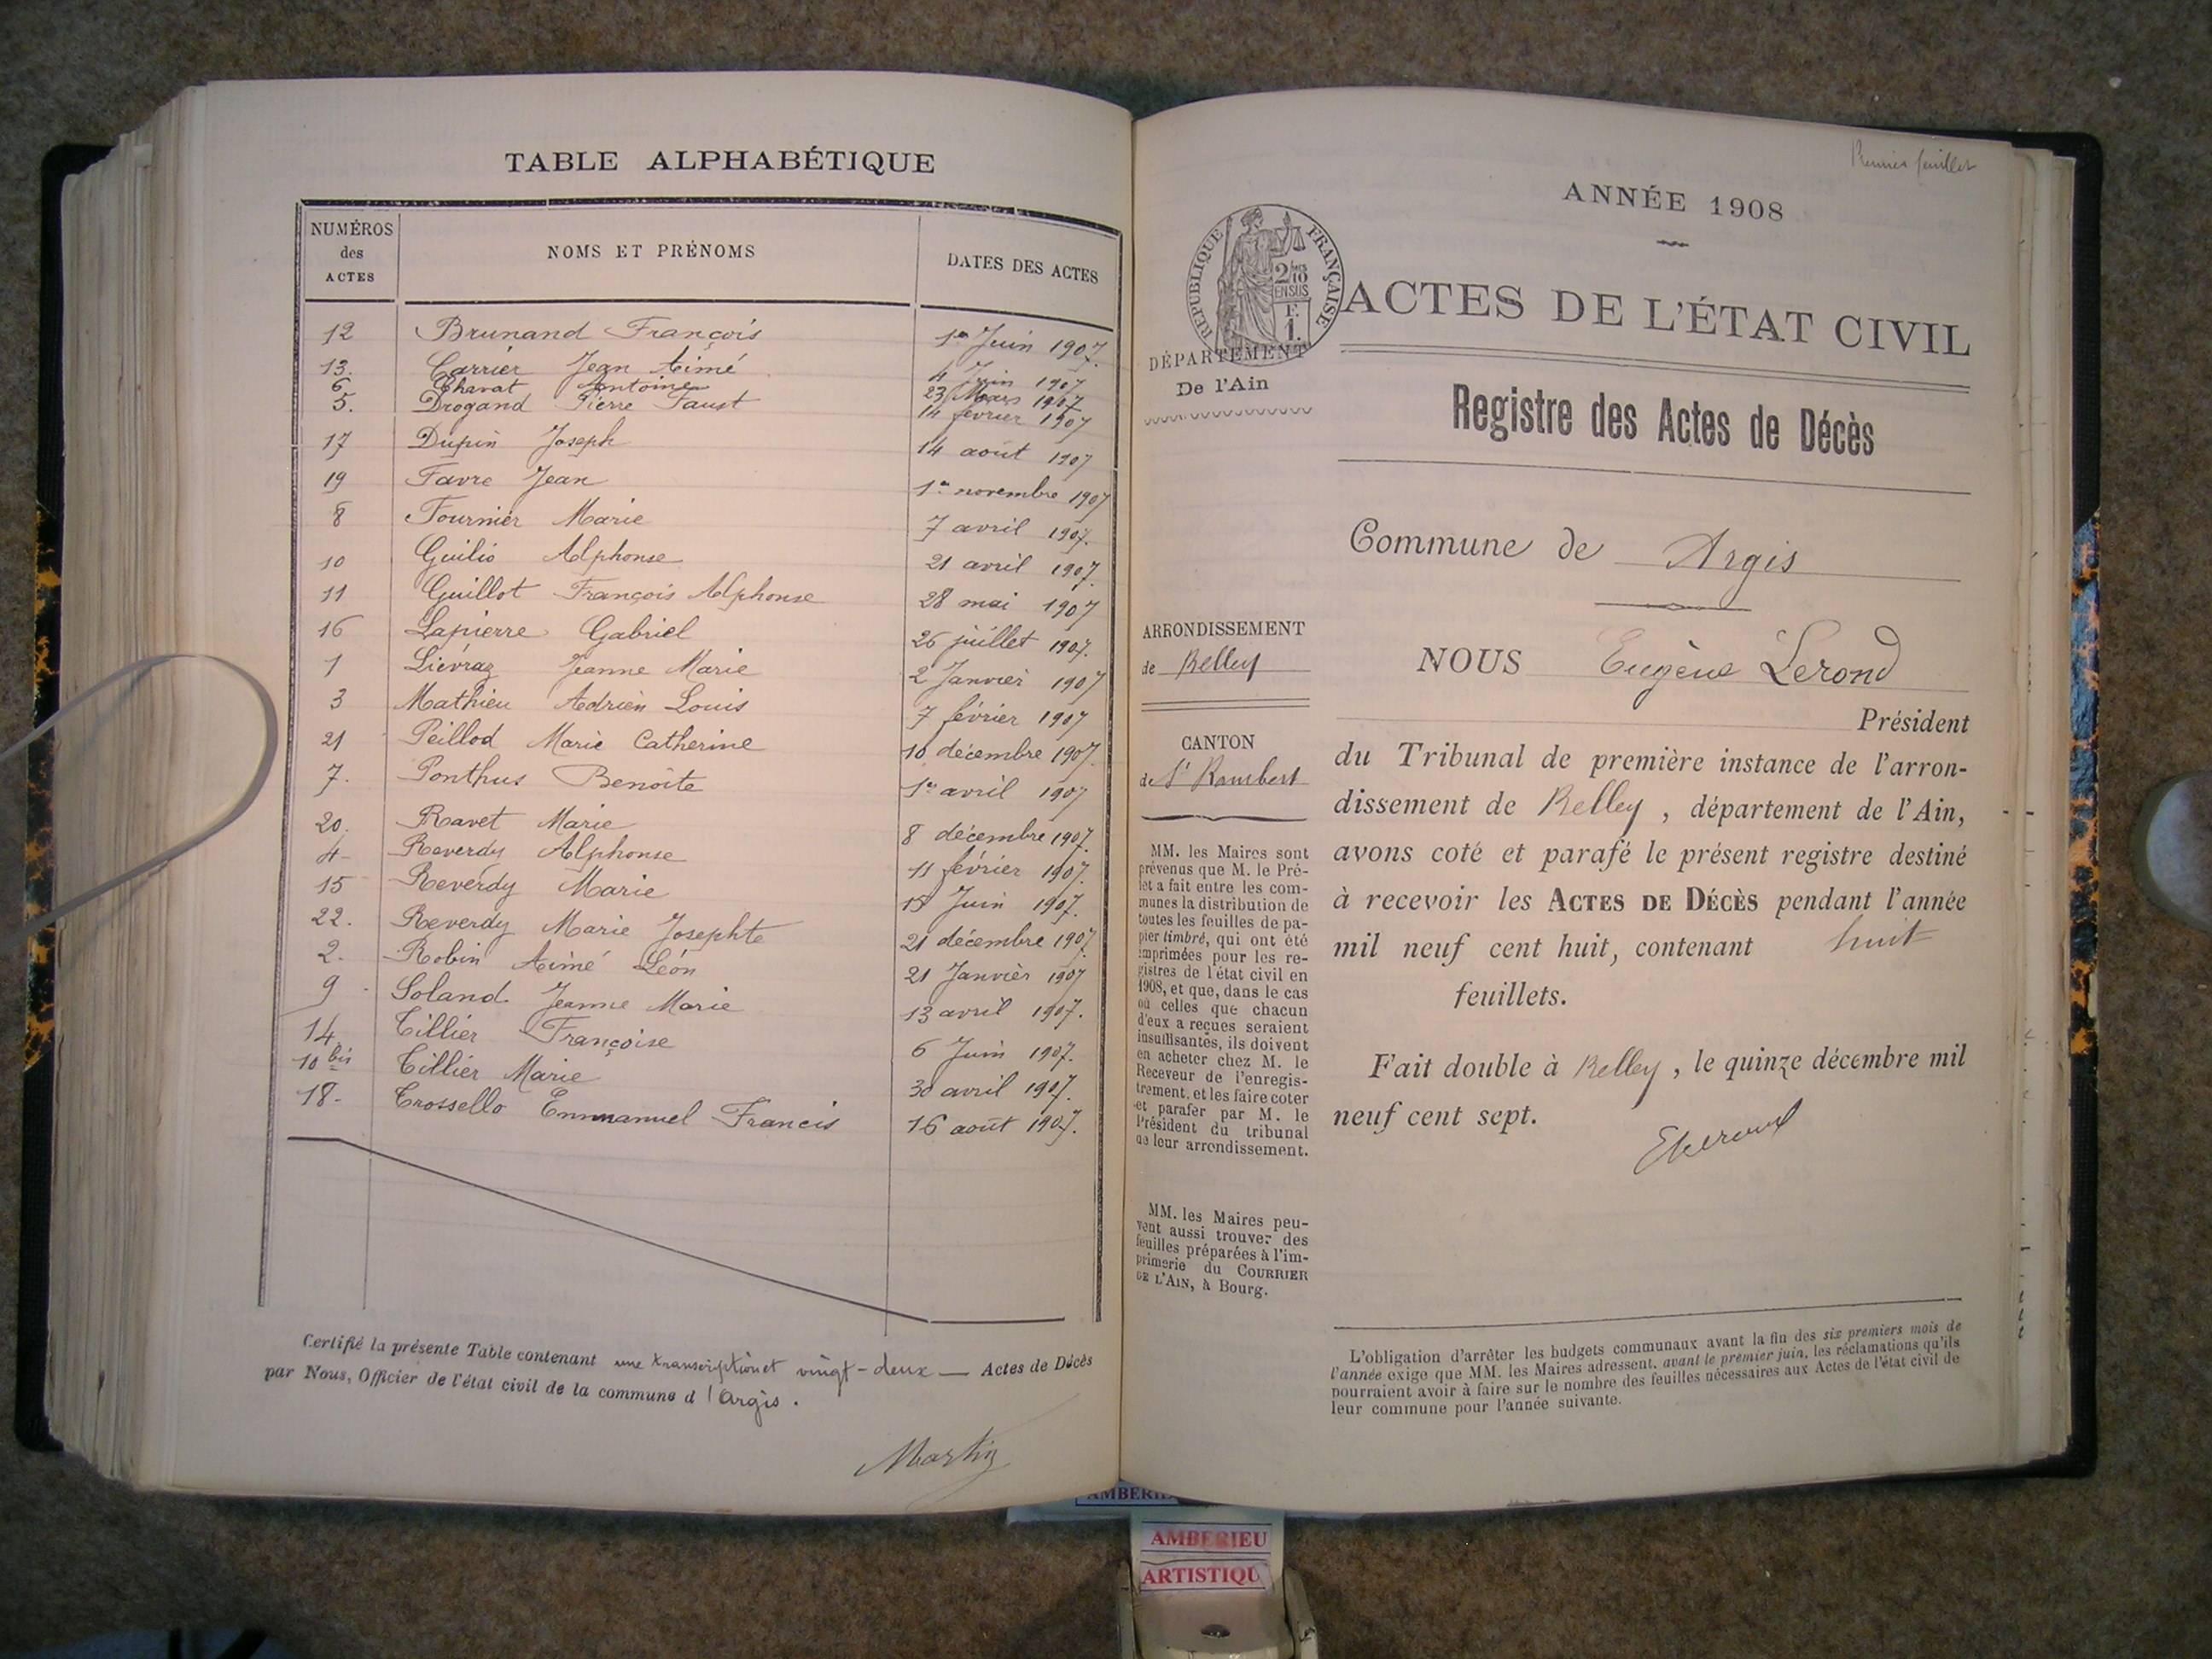 TABLE ALPHABÉTIQUE
NUMÉROS des ACTES NOMS ET PRÉNOMS DATES DES ACTES
12 Brunand François 1er Juin 1907.
13. Carrier Jean Aimé 4 Juin 1907
6. Chavat Antoine 23 Mars 1907
5. Drogand Pierre Faust 14 février 1907
17 Dupin Joseph 14 août 1907
19 Favre Jean 1er novembre 1907
8 Fournier Marie 7 avril 1907.
10 Guilio Alphonse 21 avril 1907.
11 Guillot François Alphonse 28 mai 1907
16 Lapierre Gabriel 26 juillet 1907.
1 Liévraz Jeanne Marie 2 Janvier 1907
3 Mathieu Adrien Louis 7 février 1907
21 Peillod Marie Catherine 10 décembre 1907.
7. Ponthus Benoîte 1er avril 1907
20. Ravet Marie 8 décembre 1907.
4 Reverdy Alphonse 11 février 1907.
15 Reverdy Marie 15 Juin 1907.
22. Reverdy Marie Josephte 21 décembre 1907
2. Robin Aimé Léon 21 Janvier 1907
9 Soland Jeanne Marie 13 avril 1907.
14 Tillier Françoise 6 Juin 1907.
10 bis Tillier Marie 30 avril 1907.
18. Trossello Emmanuel Francis 16 août 1907.
Certifié la présente Table contenant une transcription et vingt-deux — Actes de Décès
par Nous, Officier de l'état civil de la commune d'Argis.
Martin
Premier feuillet
ANNÉE 1908
RÉPUBLIQUE FRANÇAISE
2/10 EN SUS
F. 1.
ACTES DE L'ÉTAT CIVIL
DÉPARTEMENT
De l'Ain
Registre des Actes de Décès
Commune de Argis
ARRONDISSEMENT
de Belley
NOUS Eugène Lerond
Président
CANTON
de St Rambert
du Tribunal de première instance de l'arron-
dissement de Belley, département de l'Ain,
avons coté et parafé le présent registre destiné
à recevoir les ACTES DE DÉCÈS pendant l'année
mil neuf cent huit, contenant huit
feuillets.
Fait double à Belley, le quinze décembre mil
neuf cent sept.
MM. les Maires sont
prévenus que M. le Pré-
fet a fait entre les com-
munes la distribution de
toutes les feuilles de pa-
pier timbré, qui ont été
imprimées pour les re-
gistres de l'état civil en
1908, et que, dans le cas
où celles que chacun
d'eux a reçues seraient
insuffisantes, ils doivent
en acheter chez M. le
Receveur de l'enregis-
trement, et les faire coter
et parafer par M. le
Président du tribunal
de leur arrondissement.
MM. les Maires peu-
vent aussi trouver des
feuilles préparées à l'im-
primerie du COURRIER
DE L'AIN, à Bourg.
L'obligation d'arrêter les budgets communaux avant la fin des six premiers mois de
l'année exige que MM. les Maires adressent, avant le premier juin, les réclamations qu'ils
pourraient avoir à faire sur le nombre des feuilles nécessaires aux Actes de l'état civil de
leur commune pour l'année suivante.
AMBERIEU
ARTISTIQU